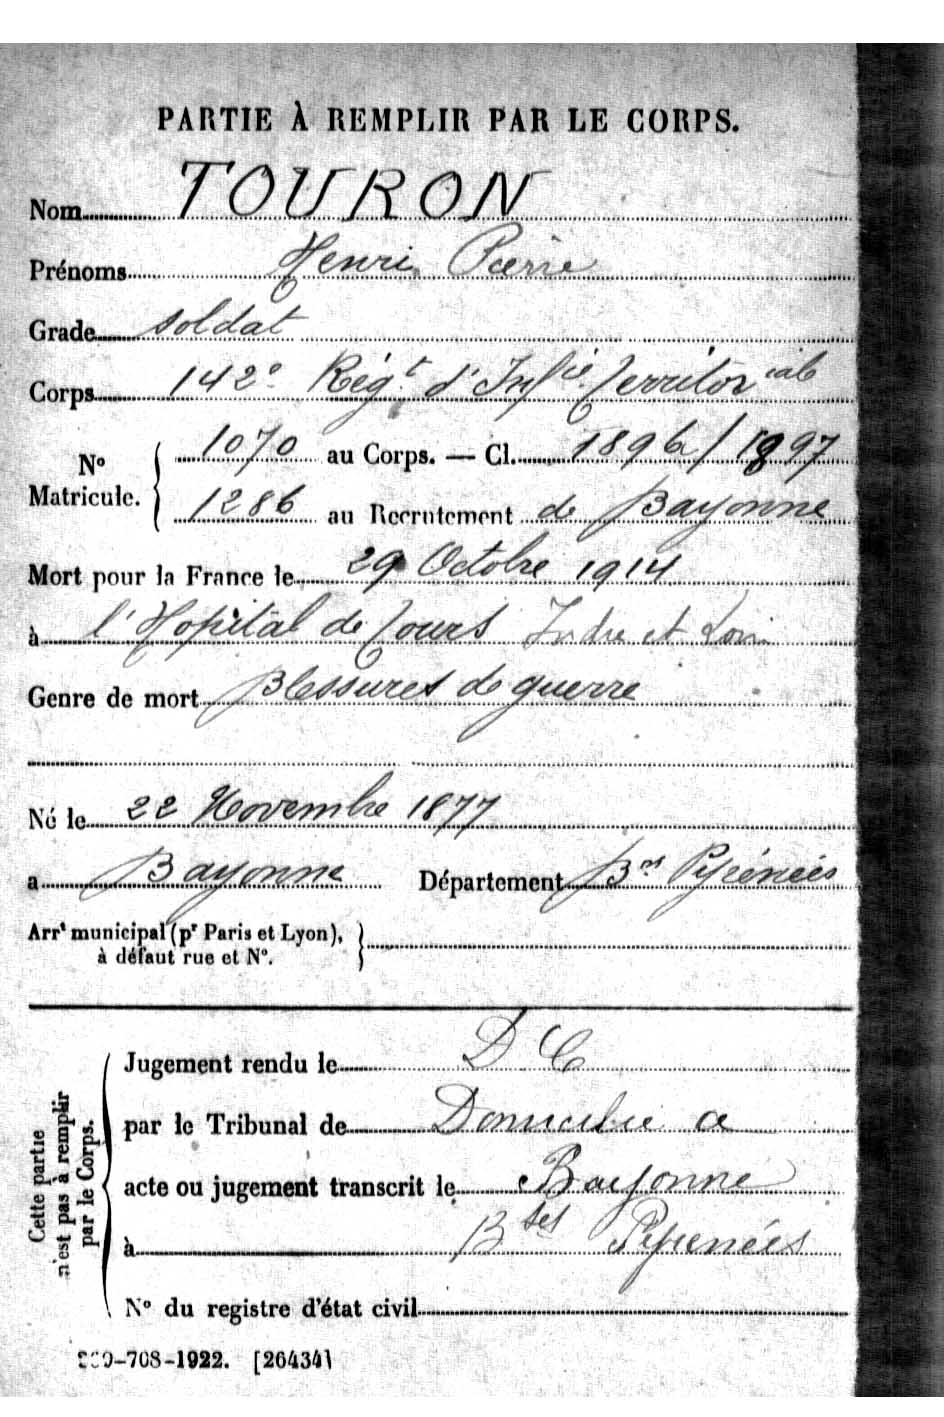 PARTIE À REMPLIR PAR LE CORPS.
Nom TOURON
Prénoms Henri Pierre
Grade soldat
Corps 142e Régt d'Infie Territoriale
No Matricule. { 1070 au Corps. — Cl. 1896 / 1897
1286 au Recrutement de Bayonne
Mort pour la France le 29 Octobre 1914
à l'Hopital de Tours Indre et Loire
Genre de mort Blessures de guerre
Né le 22 Novembre 1877
a Bayonne Département Bses Pyrénées
Arrt municipal (pr Paris et Lyon), }
à défaut rue et No.
Cette partie n'est pas à remplir par le Corps.
Jugement rendu le D C
par le Tribunal de Domicilié a
acte ou jugement transcrit le Bayonne
à Bses Pyrenées
No du registre d'état civil
-708-1922. [26434]